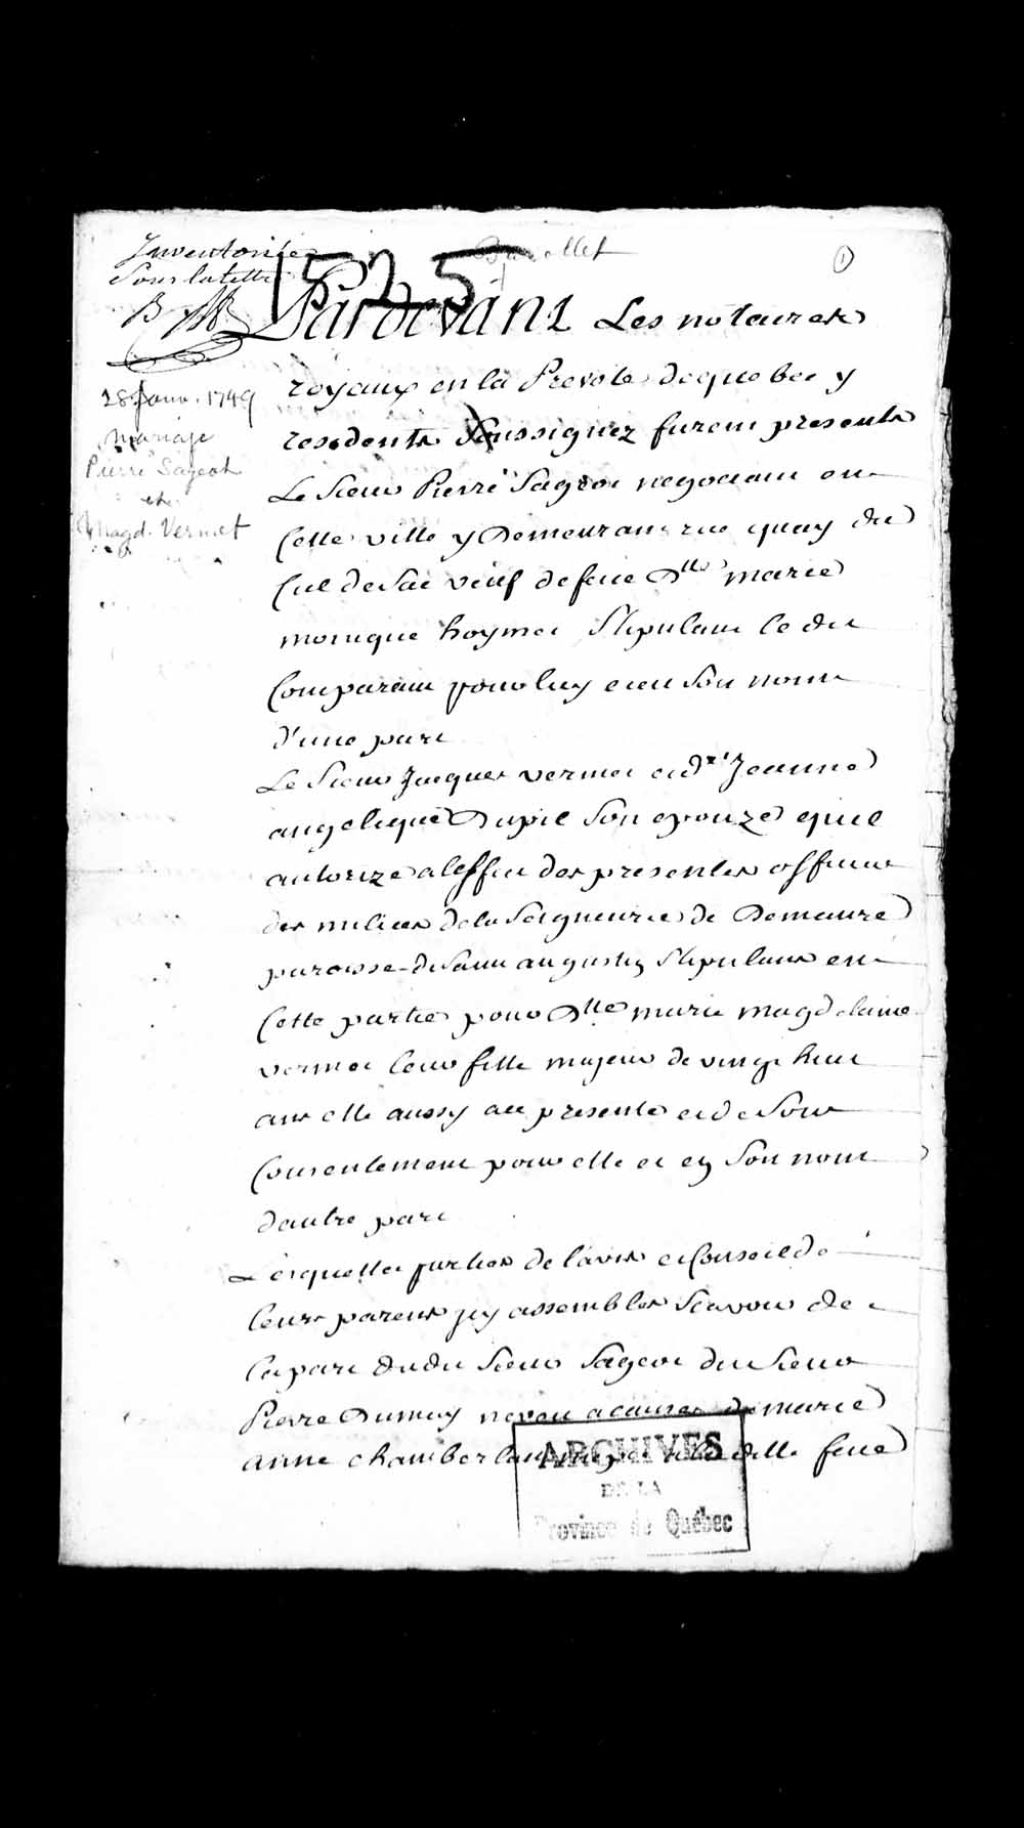 Inventoriée
Sous la lettre
B
1525
①
28 Janv. 1749
Mariage
Pierre Sageot
et
Magd. Vermet
Pardevant Les notaires
royaux en la Prevoté de quebec y
residents Soussignez furent presents
Le Sieur Pierre Sageot negociant en
Cette ville y Demeurant rue quay du
Cul de Sac veuf de feue Dlle marie
monique hoymet Stipulant le dit
Comparant pour luy et en Son nom
d'une part
Le Sieur Jacques vermet et de Jeanne
angelique Dupil Son epouze quil
autorize a leffet des presentes officier
des milices de la Seigneurie de Demaure
paroisse de Saint augustin Stipulant en
Cette partie pour Dlle marie magdelaine
vermet leur fille majeure de vingt huit
ans elle aussy au presente et de Son
Consentement pour elle et en Son nom
dautre part
Lesquelles parties de lavis et Conseil de
leurs parents jcy assemblés Scavoir de
la part dudit Sieur Sageot du Sieur
Pierre Dumay neveu a cause de marie
anne chamberlan de la dlle feue
ARCHIVES
DE LA
Province de Québec